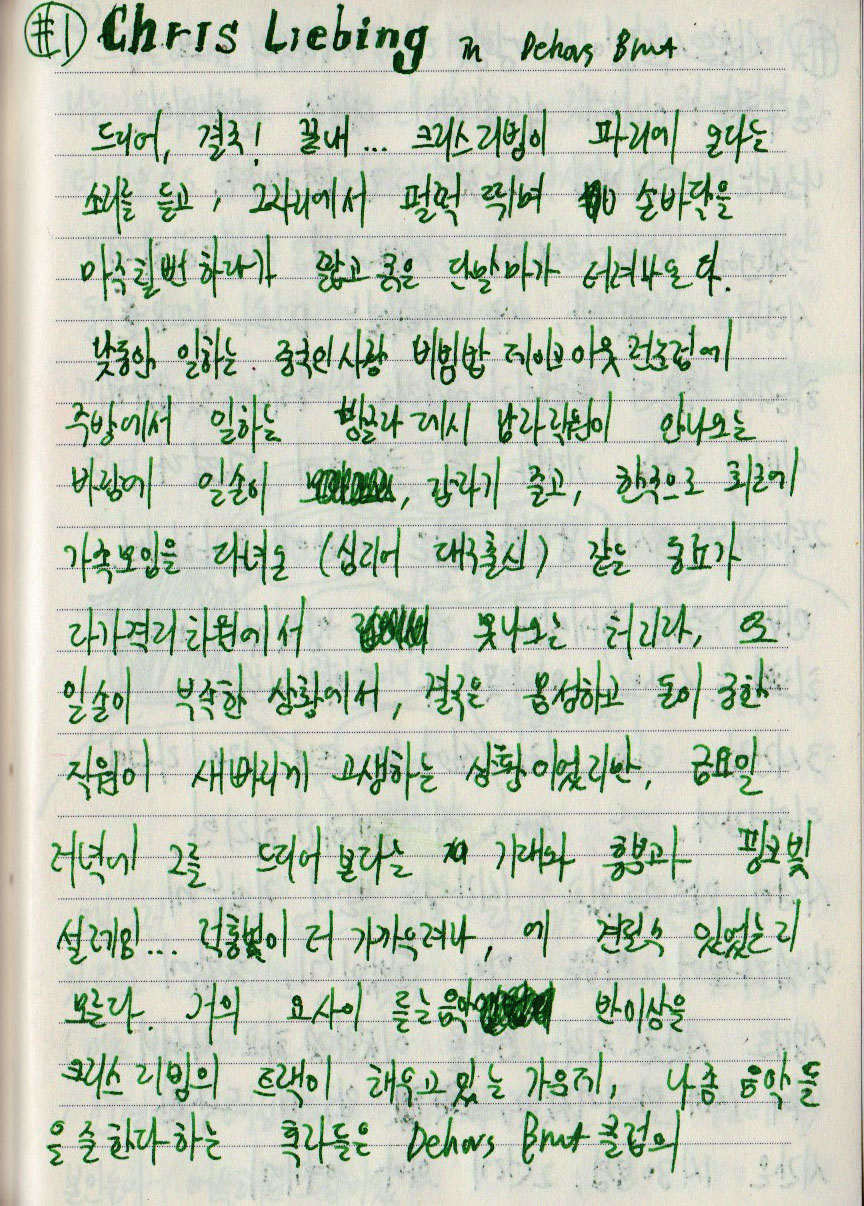 #1 Chris Liebing in Dehors Brut
드디어, 결국! 끝내... 크리스 리빙이 파리에 온다는
소리를 듣고, 그자리에서 펄쩍 뛰며 손바닥을
마주칠번 하다가 짧고 굵은 단말마가 터져나온다.
낮동안 일하는 중국인사장 비빔밥 테이크아웃 전문점에
주방에서 일하는 방글라데시 남자직원이 안나오는
바람에 일손이 , 갑자기 줄고, 한국으로 최근에
가족모임을 다녀온 (심지어 대구출신) 같은 동료가
자가격리차원에서 못나오는 처리라, 또
일손이 부족한 상황에서, 결국은 몸성하고 돈이 궁한
직원이 새빠지게 고생하는 상황이었지만, 금요일
저녁에 그를 드디어 본다는 기대와 흥분과 핑크빛
설레임... 적흥빛이 더 가까우려나, 에 견딜수 있었는지
모른다. 거의 요사이 듣는음악 반이상을
크리스 리빙의 트랙이 채우고있는 가운데, 나좀 음악듣
을줄 한다하는 혹자들은 Dehors Brut 클럽의